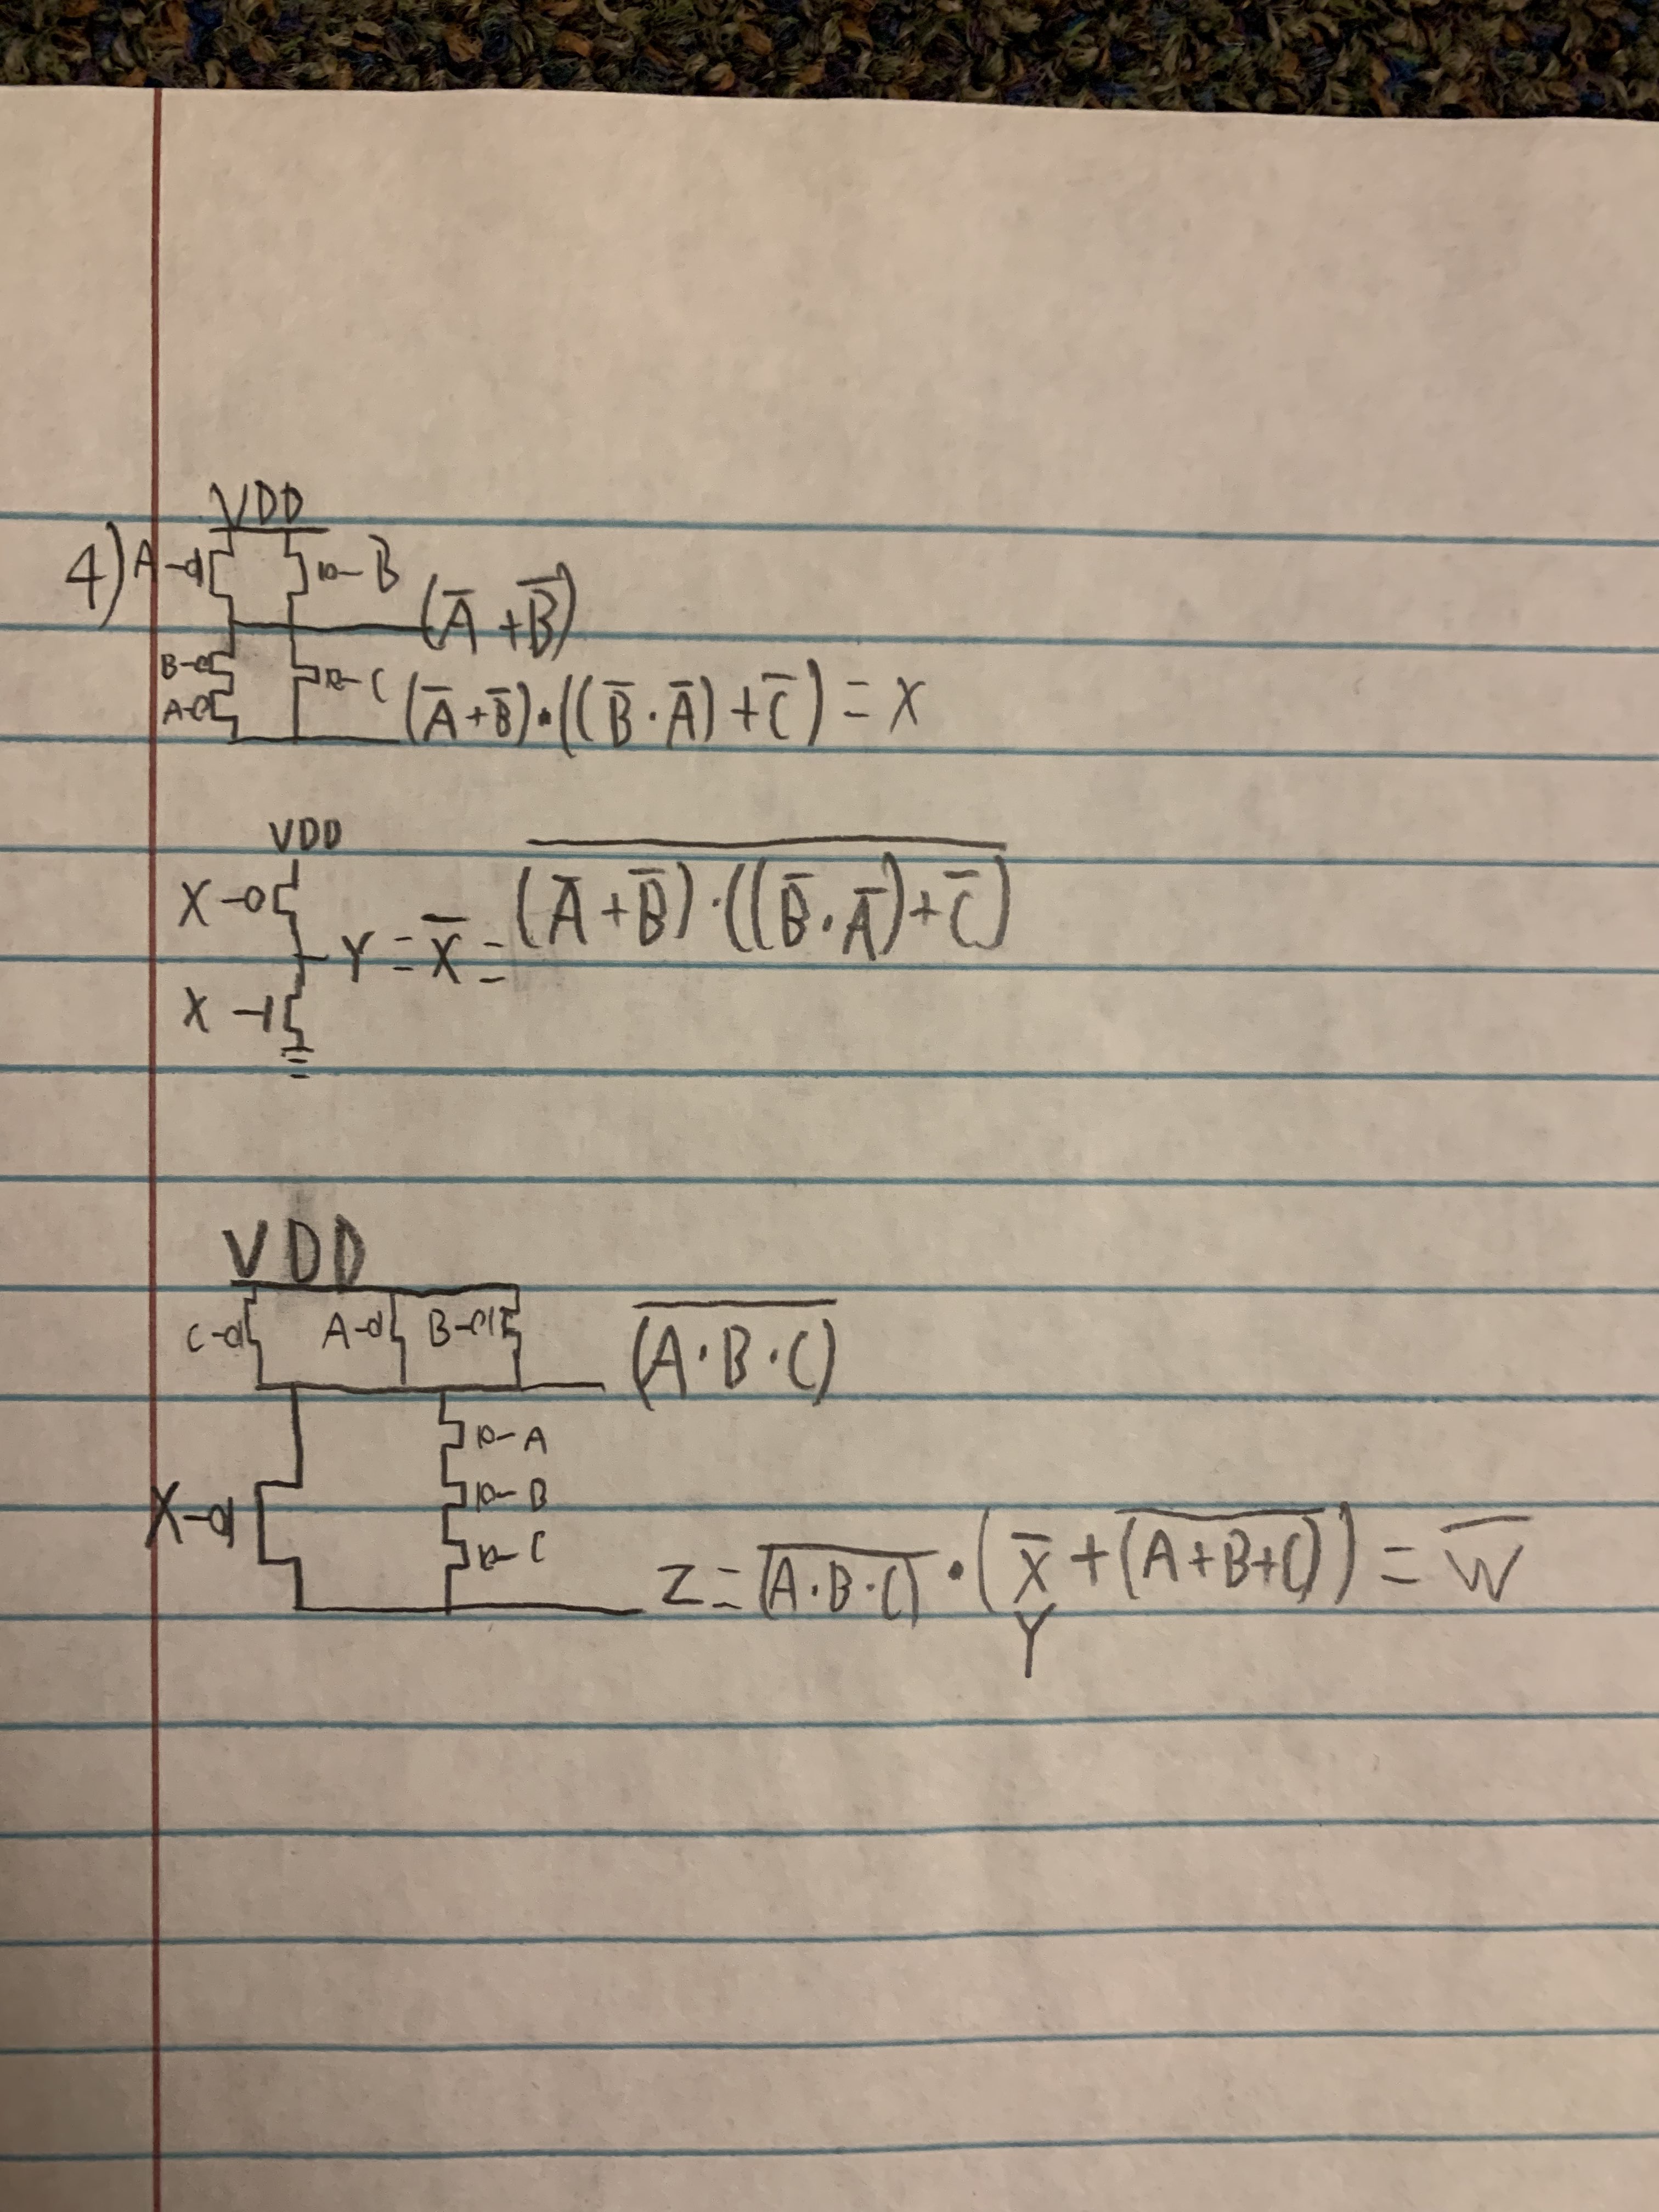 VDD
4) A B
(A̅ + B̅)
B
A C (A̅ + B̅)·((B̅·A̅) + C̅) = X
VDD
X
Y = X̅ = \overline{(A̅ + B̅)·((B̅·A̅) + C̅)}
X
VDD
C A B \overline{(A·B·C)}
A
B
X
C
Z = \overline{(A·B·C)} · (X̅ + \overline{(A+B+C)}) = W̅
Y